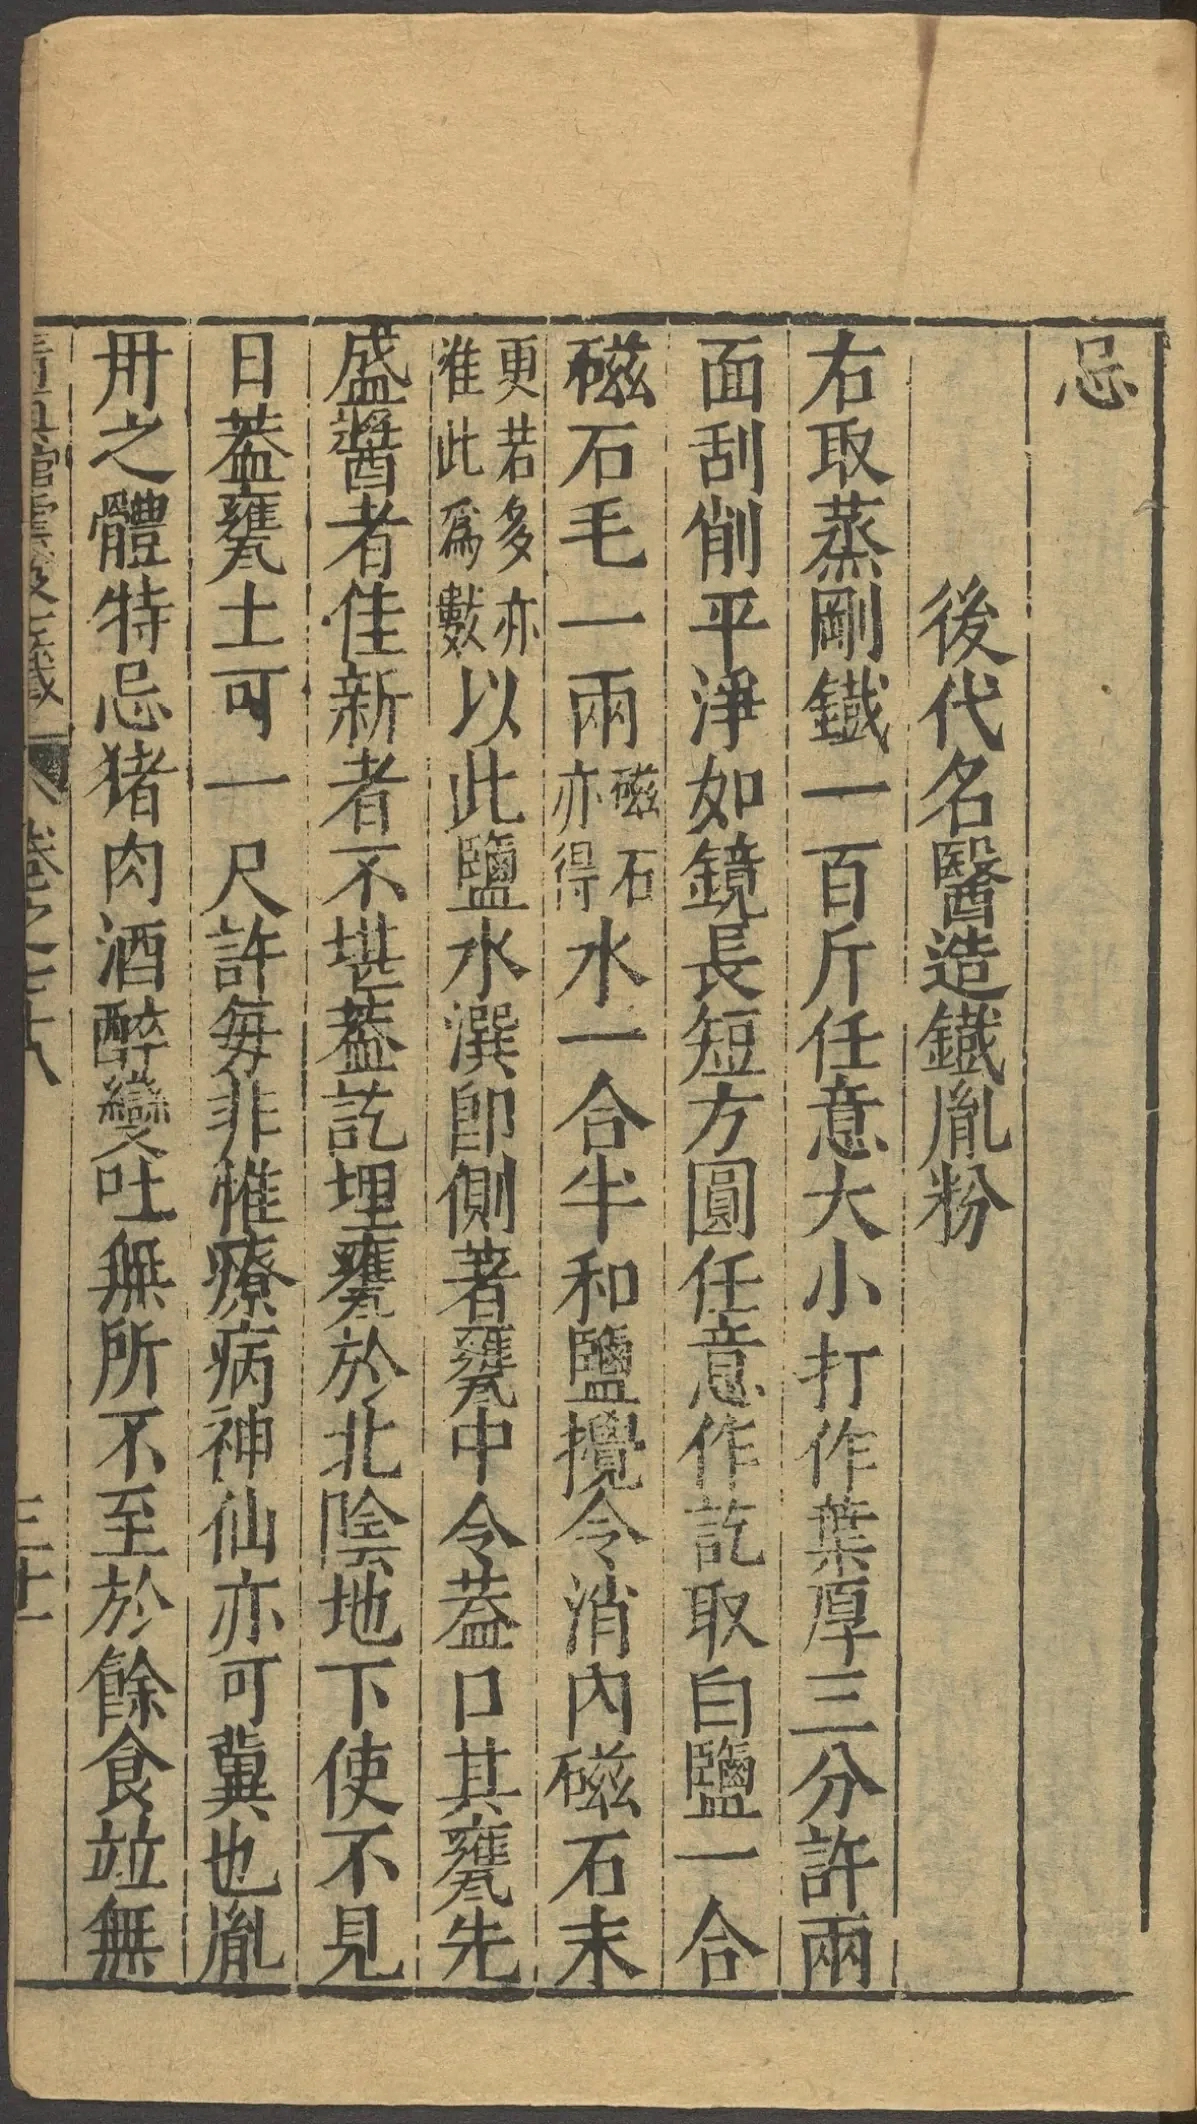 忌
後代名醫造鐵胤粉
右取蒸剛鐵一百斤任意大小打作葉厚三分許兩
面刮削平淨如鏡長短方圓任意作訖取白鹽一合
磁石毛一兩磁石亦得水一合半和鹽攪令消內磁石末
更若多亦准此爲數以此鹽水潠卽側著甕中令葢口其甕先
盛醬者佳新者不堪葢訖埋甕於北陰地下使不見
日葢甕土可一尺許每非惟療病神仙亦可冀也胤
丹之體特忌猪肉酒醉變吐無所不至於餘食並無
舘雲笈七籤 卷之七十八